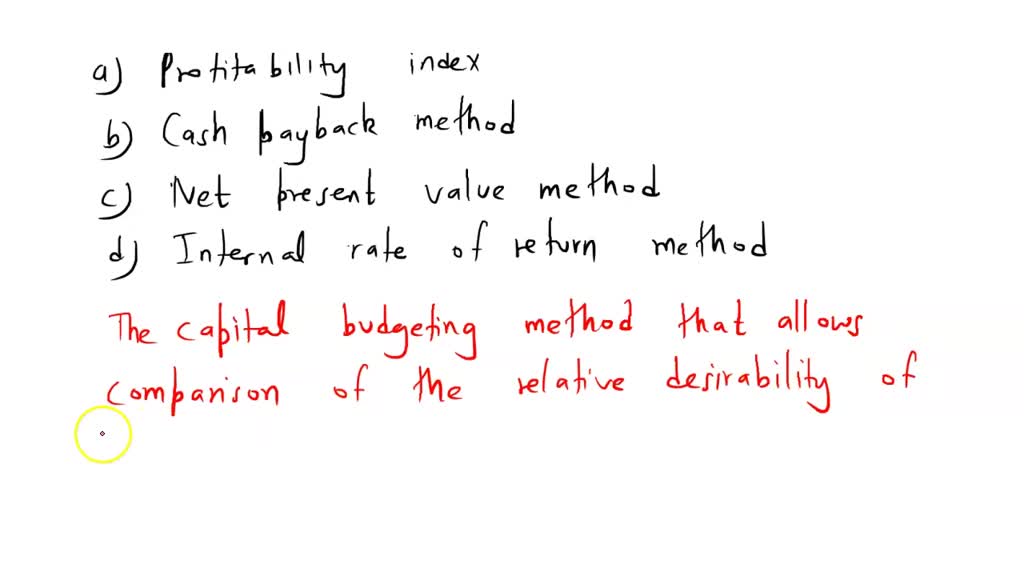 a) Profitability index
b) Cash payback method
c) Net present value method
d) Internal rate of return method
The capital budgeting method that allows
comparison of the relative desirability of